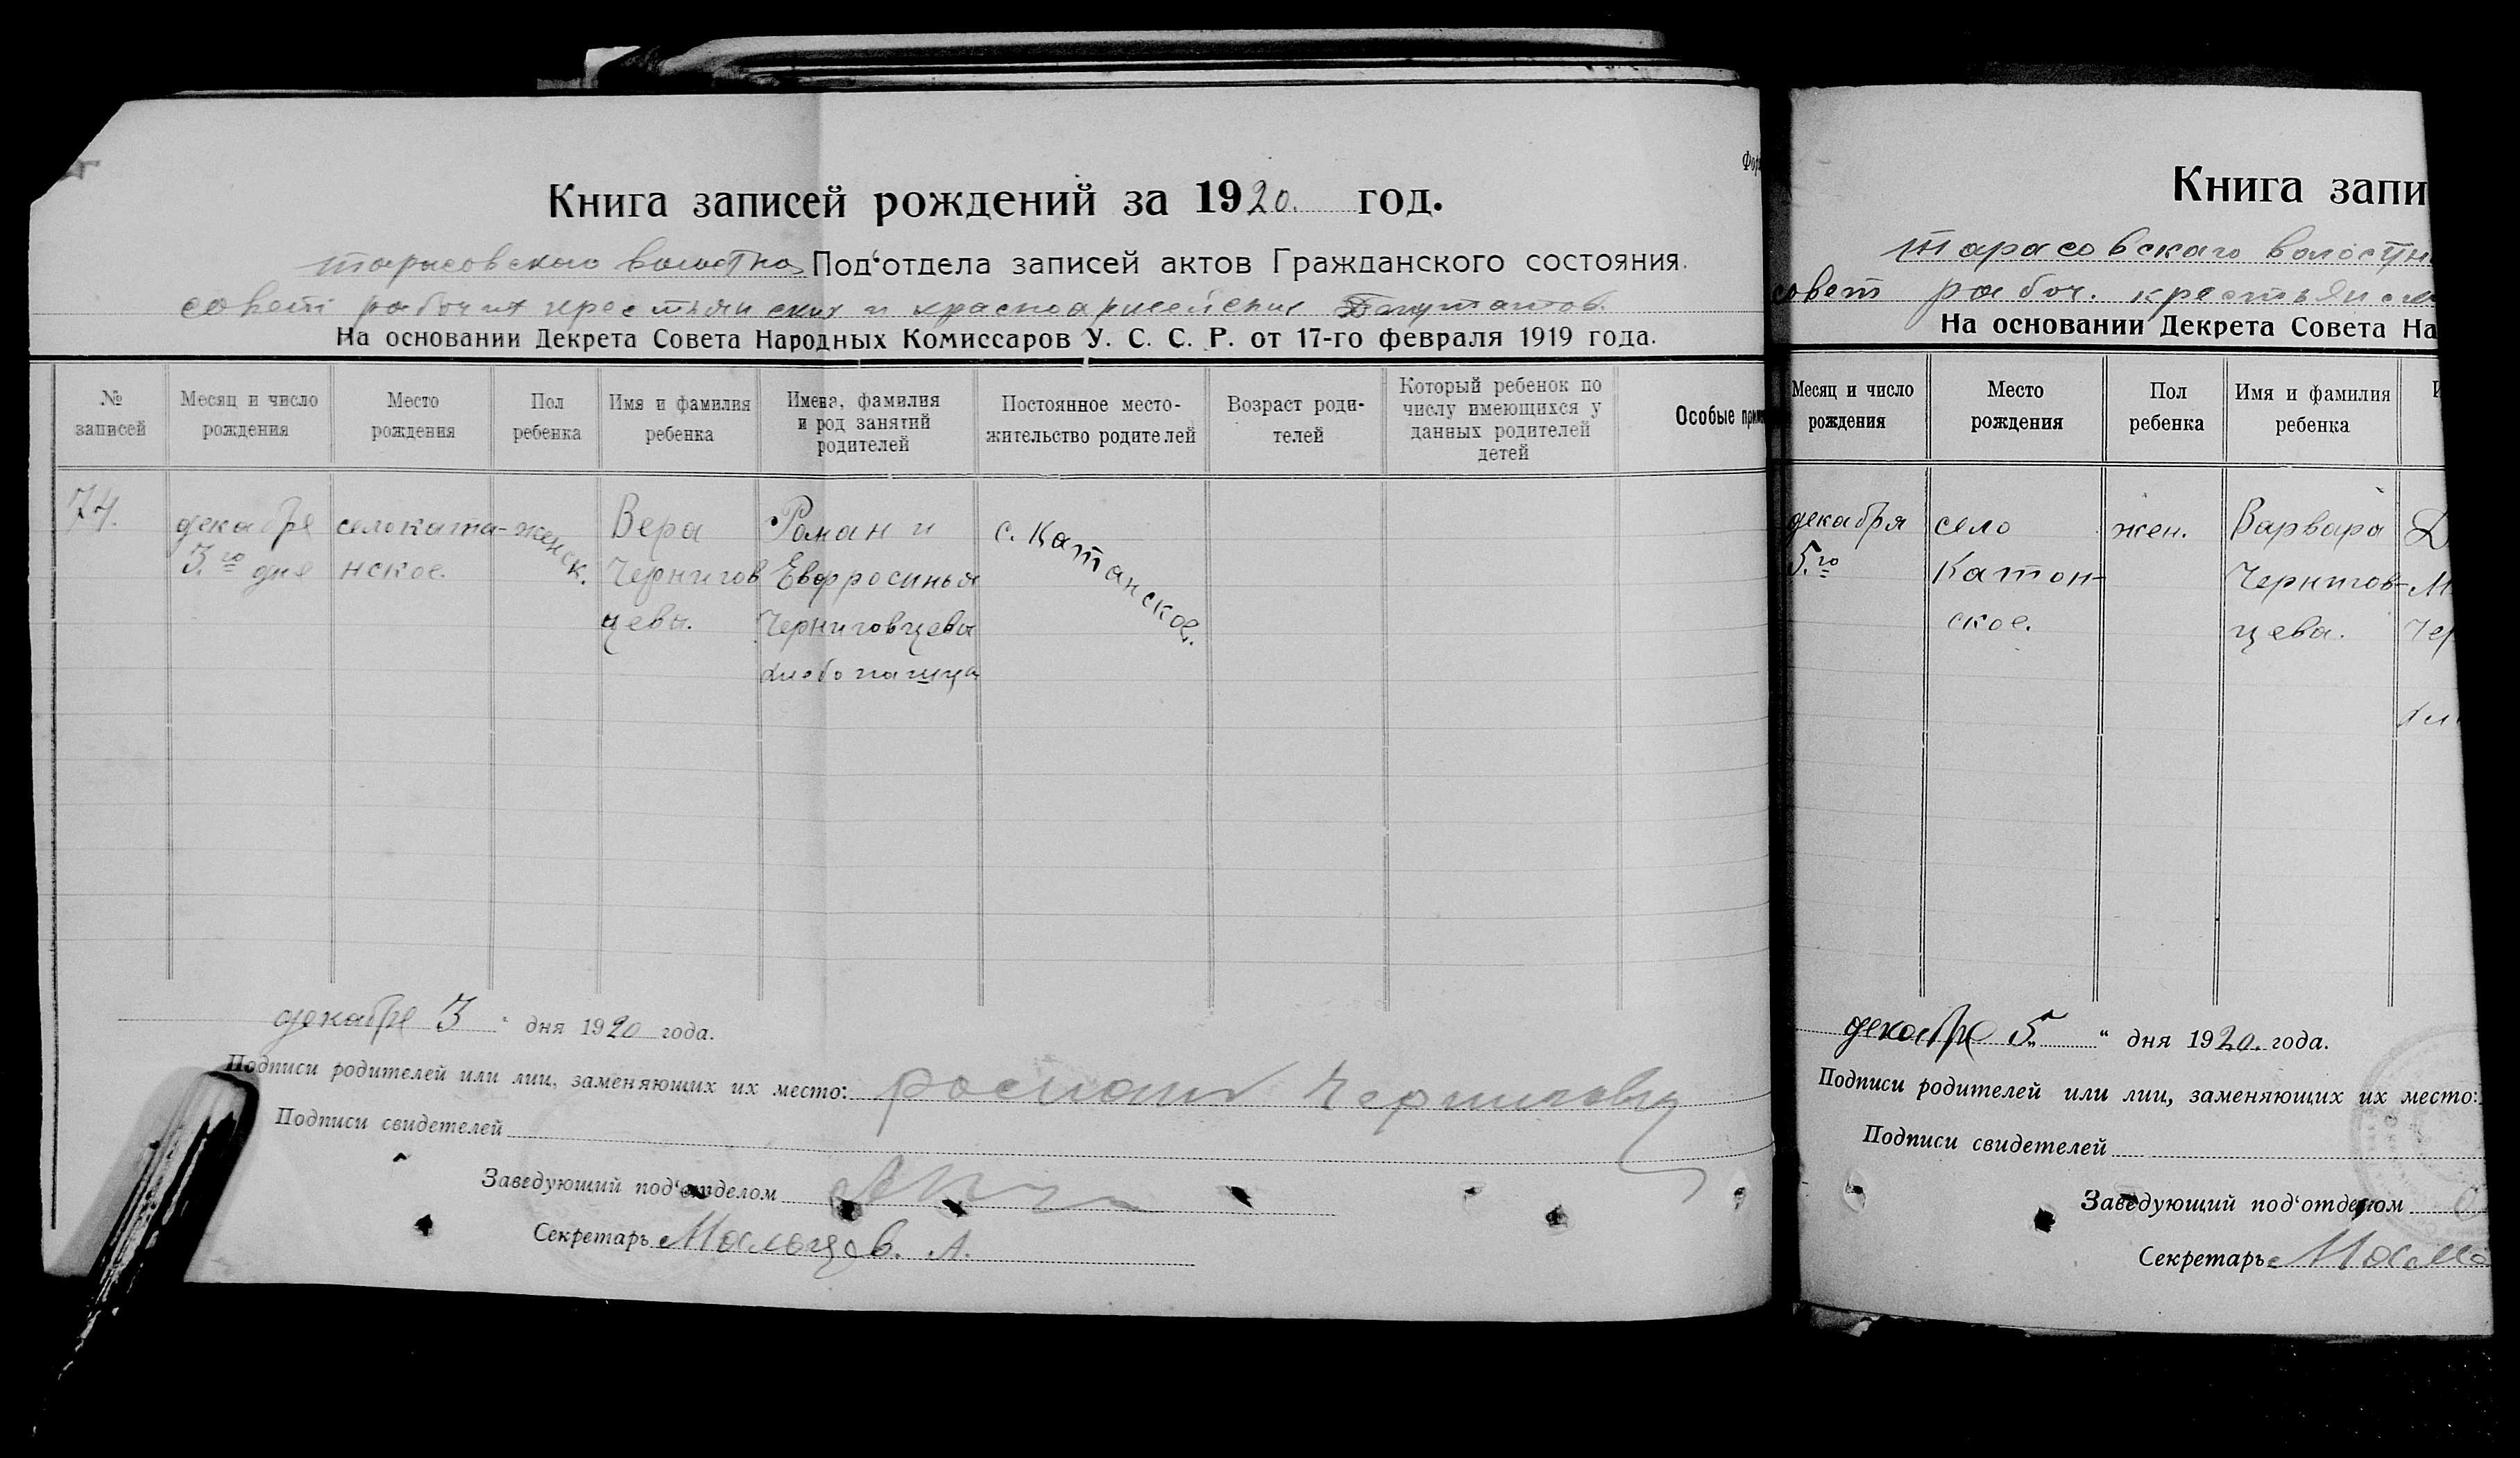 Форм
Книга записей рождений за 1920. год.
тарасовского волостно Под‘отдела записей актов Гражданского состояния.
совет рабочих крестьянских и красноармейских Депутатов.
На основании Декрета Совета Народных Комиссаров У. С. С. Р. от 17-го февраля 1919 года.
№ записей
Месяц и число рождения
Место рождения
Пол ребенка
Имя и фамилия ребенка
Имена, фамилия и род занятий родителей
Постоянное место-жительство родителей
Возраст роди-телей
Который ребенок по числу имеющихся у данных родителей детей
Особые прим
74.
декабре 3.го дня
село ката-нское.
женск.
Вера Чернигов цевы.
Роман и Евфросинья Черниговцевы хлебопашцы
с. Катанское.
декабре 3 " дня 1920 года.
Подписи родителей или лиц, заменяющих их место:
Подписи свидетелей
Заведующий под‘отделом
Секретарь А.
Книга запи
тарасовскаго волостн
совет рабоч. крестьянс
На основании Декрета Совета На
Месяц и число рождения
Место рождения
Пол ребенка
Имя и фамилия ребенка
декабря 5.го
село Катон-ское.
жен.
Варвара Чернигов-цева.
Д
М
Чер
декабре 5 " дня 1920. года.
Подписи родителей или лиц, заменяющих их место:
Подписи свидетелей
Заведующий под‘отделом
Секретарь